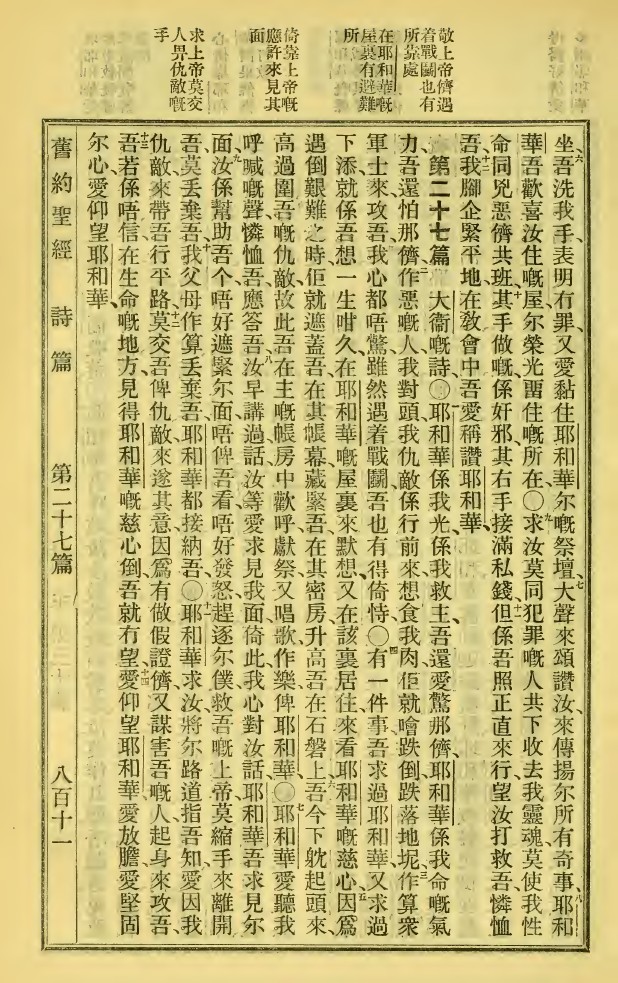 敬上帝儕遇
着戰鬬也有
所靠處
在耶和華嘅
屋裏有避難
所
倚靠上帝嘅
應許來見其
面
求上帝莫交
人畀仇敵嘅
手
六坐吾洗我手表明有罪又愛黏住耶和華尔嘅祭壇七大聲來頌讚汝來傳揚尔所有奇事八耶和
華吾歡喜汝住嘅屋尔榮光畱住嘅所在〇九求汝莫同犯罪嘅人共下收去我靈魂莫使我性
命同兇惡儕共班十其手做嘅係奸邪其右手接滿私錢十一但係吾照正直來行望汝打救吾憐恤
吾十二我腳企緊平地在敎會中吾愛稱讚耶和華
第二十七篇 大衞嘅詩〇一耶和華係我光係我救主吾還愛驚那儕耶和華係我命嘅氣
力吾還怕那儕二作惡嘅人我對頭我仇敵係行前來想食我肉佢就噲跌倒跌落地坭三作算衆
軍士來攻吾我心都唔驚雖然遇着戰鬬吾也有得倚恃〇四有一件事吾求過耶和華又求過
下添就係吾想一生咁久在耶和華嘅屋裏來默想又在該裏居住來看耶和華嘅慈心五因爲
遇倒艱難之時佢就遮蓋吾在其帳幕藏緊吾在其密房升高吾在石磐上六吾今下躭起頭來
高過圍吾嘅仇敵故此吾在主嘅帳房中歡呼獻祭又唱歌作樂俾耶和華〇七耶和華愛聽我
呼喊嘅聲憐恤吾應答吾八汝早講過話汝等愛求見我面倚此我心對汝話耶和華吾求見尔
面九汝係幫助吾个唔好遮緊尔面唔俾吾看唔好發怒趕逐尔僕救吾嘅上帝莫縮手來離開
吾莫丟棄吾十我父母作算丟棄吾耶和華都接納吾〇十一耶和華求汝將尔路道指吾知愛因我
仇敵來帶吾行平路十二莫交吾俾仇敵來遂其意因爲有做假證儕又謀害吾嘅人起身來攻吾
十三吾若係唔信在生命嘅地方見得耶和華嘅慈心倒吾就冇望十四愛仰望耶和華愛放膽愛堅固
尔心愛仰望耶和華
舊約聖經 詩篇 第二十七篇 八百十一